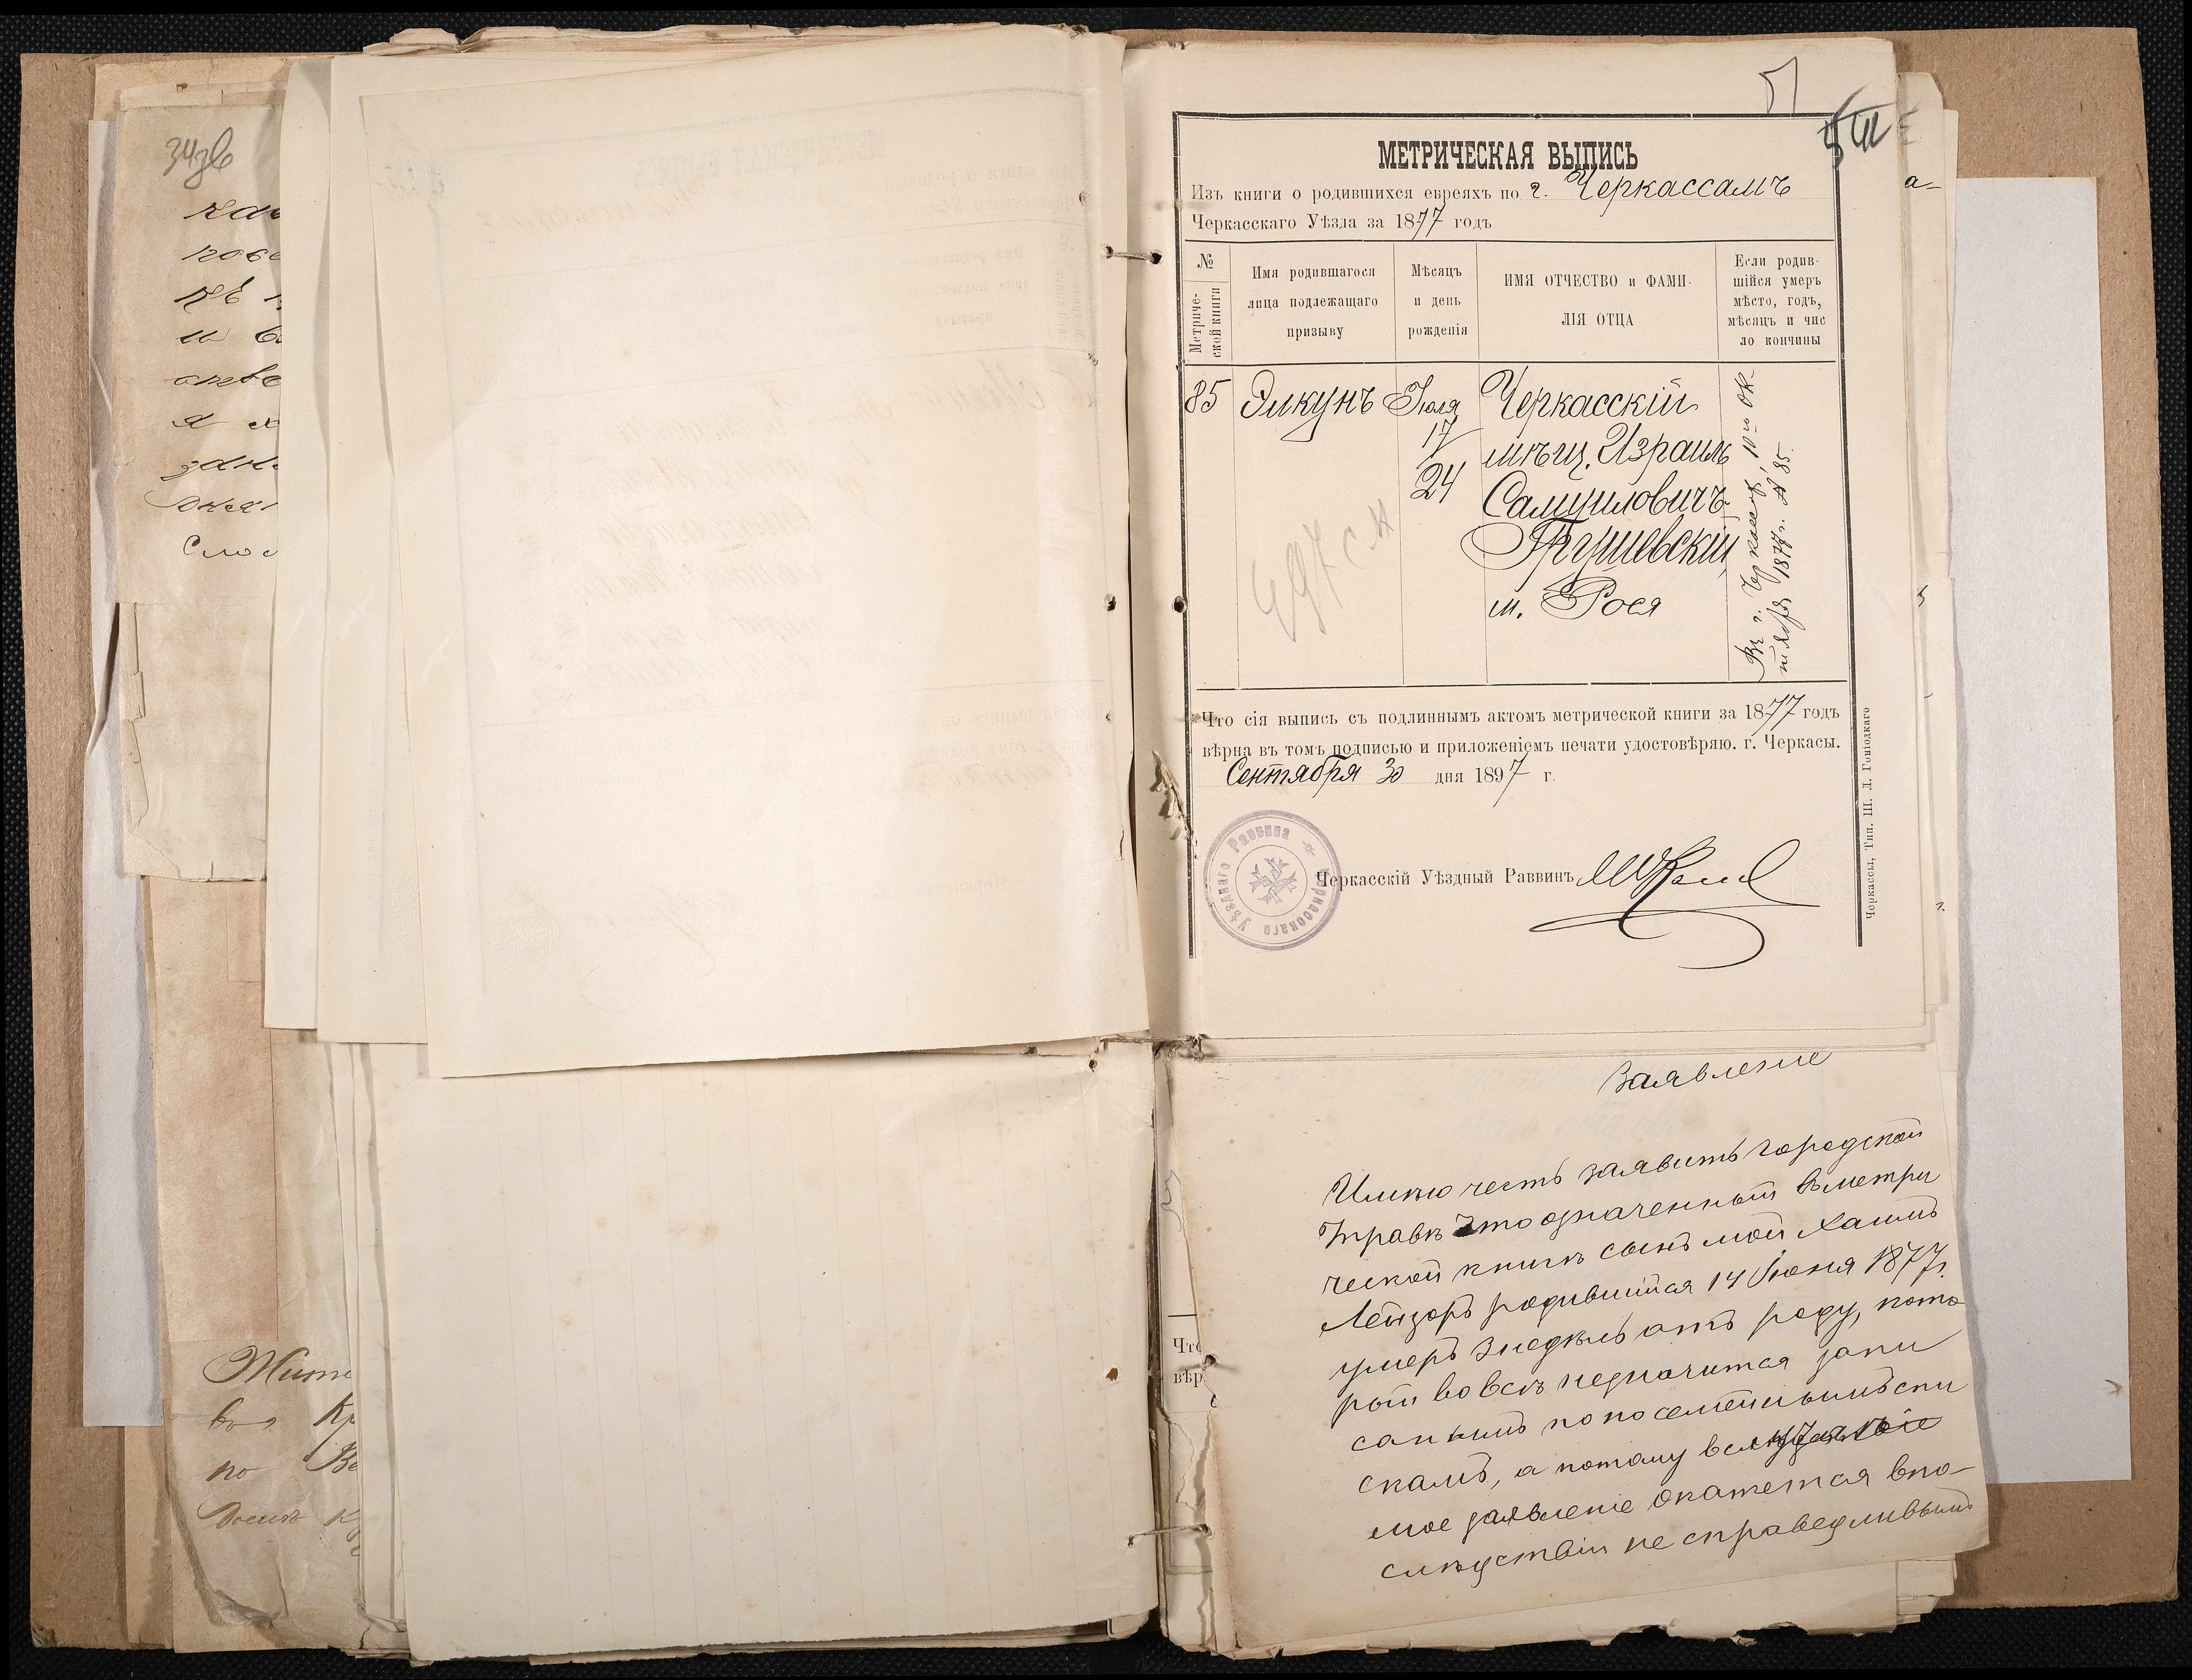 каз
пове
къ
и
я
Сло
Жит
Кр
по Ве
51
МЕТРИЧЕСКАЯ ВЫПИСЬ
Изъ книги о родившихся евреяхъ по г. Черкассамъ
Черкасскаго Уѣзда за 1877 годъ
№ Метриче-
ской книги
Имя родившагося
лица подлежащаго
призыву
Мѣсяцъ
и день
рожденія
ИМЯ ОТЧЕСТВО и ФАМИ-
ЛІЯ ОТЦА
Если родив-
шійся умеръ
мѣсто, годъ,
мѣсяцъ и чис
ло кончины
85 Эикунъ Іюля Черкасскій
17 мѣщ. Израиль
24 Самуиловичъ
Грушевскій
м. Рося
Въ г. Черкассахъ, 10го ок-
тября 1877 г. № 85.
Что сія выпись съ подлиннымъ актомъ метрической книги за 1877 годъ
вѣрна въ томъ подписью и приложеніемъ печати удостовѣряю. г. Черкасы.
Сентября 30 дня 1897 г.
Черкасскаго Уѣзднаго Раввина
Черкасскій Уѣздный Раввинъ
Черкассы, Тип. Ш. Л. Гоніодкаго
Что
вѣр
Заявленіе
Имѣю честь заявить городской
Управѣ что означенный въ метри
ческой книгѣ сынъ мой Хаимъ
Лейзоръ родившійся 14 Іюня 1877 г.
умеръ 3 недѣль отъ роду, кото
рый вовсѣ не значится запи
саннымъ по посемейнымъ спи
скамъ, а потому если
мое заявленіе окажется впо-
слѣдствіи не справедливымъ